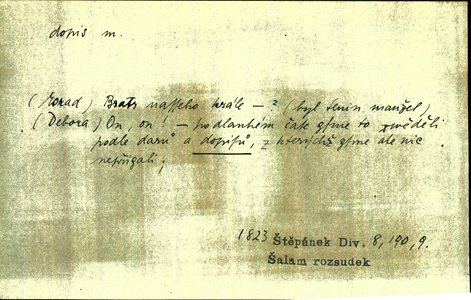 dopis m.
(Morad) Bratr nasseho krále – ? (byl tenin manžel)
(Debora) On, on! – po dlauhém čase gsme to zwěděli
podle darů a dopisů, z kterýchž gsme ale nic
nepřigali;
1823 Štěpánek Div. 8, 190, 9.
Šalam rozsudek